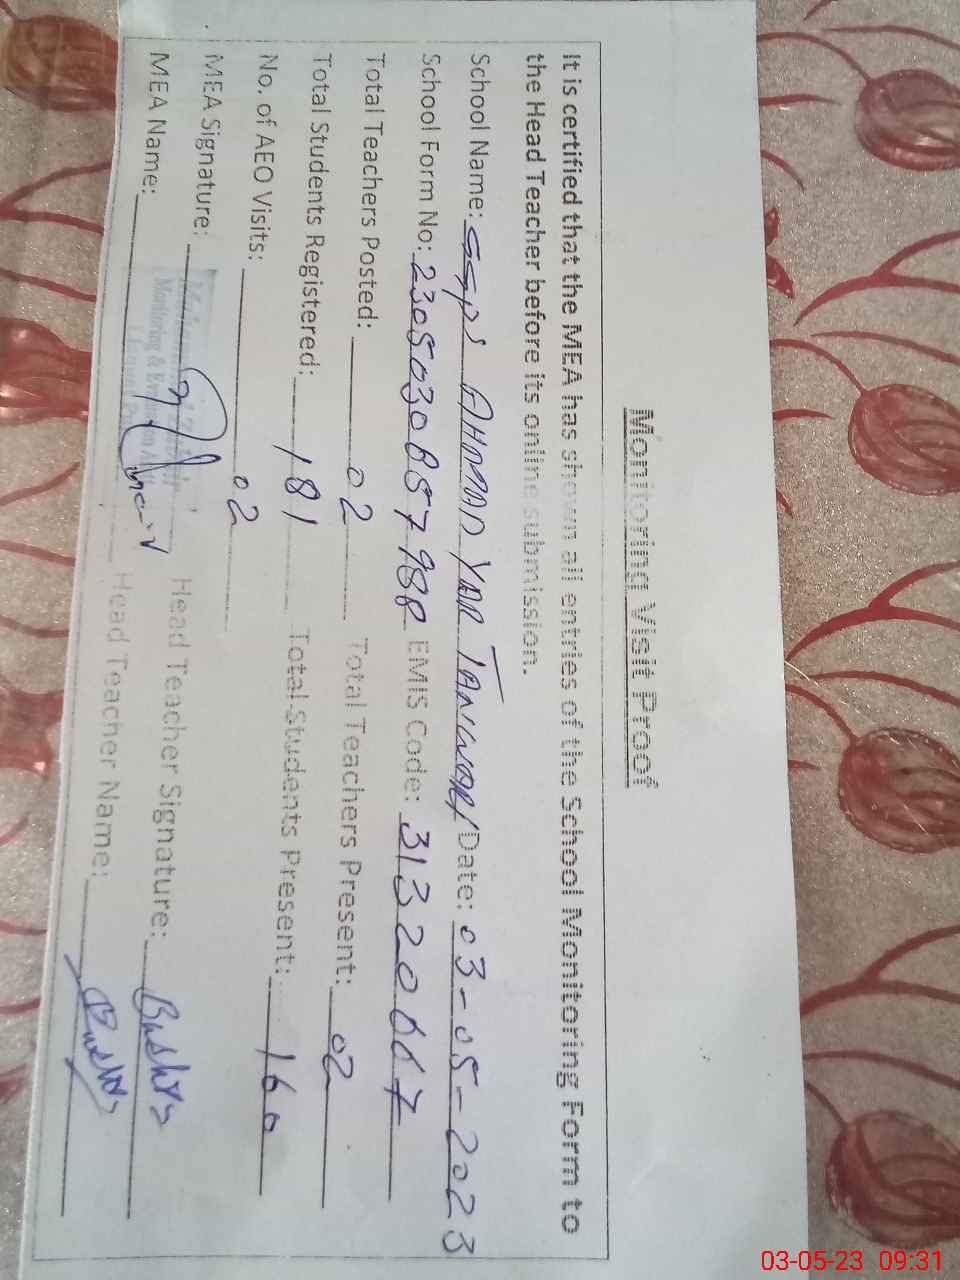 Monitoring Visit Proof
It is certified that the MEA has shown all entries of the School Monitoring Form to
the Head Teacher before its online submission.
School Name: GGPS AHMAD YAR TANWARI Date: 03-05-2023
School Form No: EMIS Code: 31320667
Total Teachers Posted: 02 Total Teachers Present: 02
Total Students Registered: 181 Total Students Present: 160
No. of AEO Visits: 02
MEA Signature: Head Teacher Signature: Bushra
MEA Name: Head Teacher Name: Bushra
Monitoring &
03-05-23 09:31